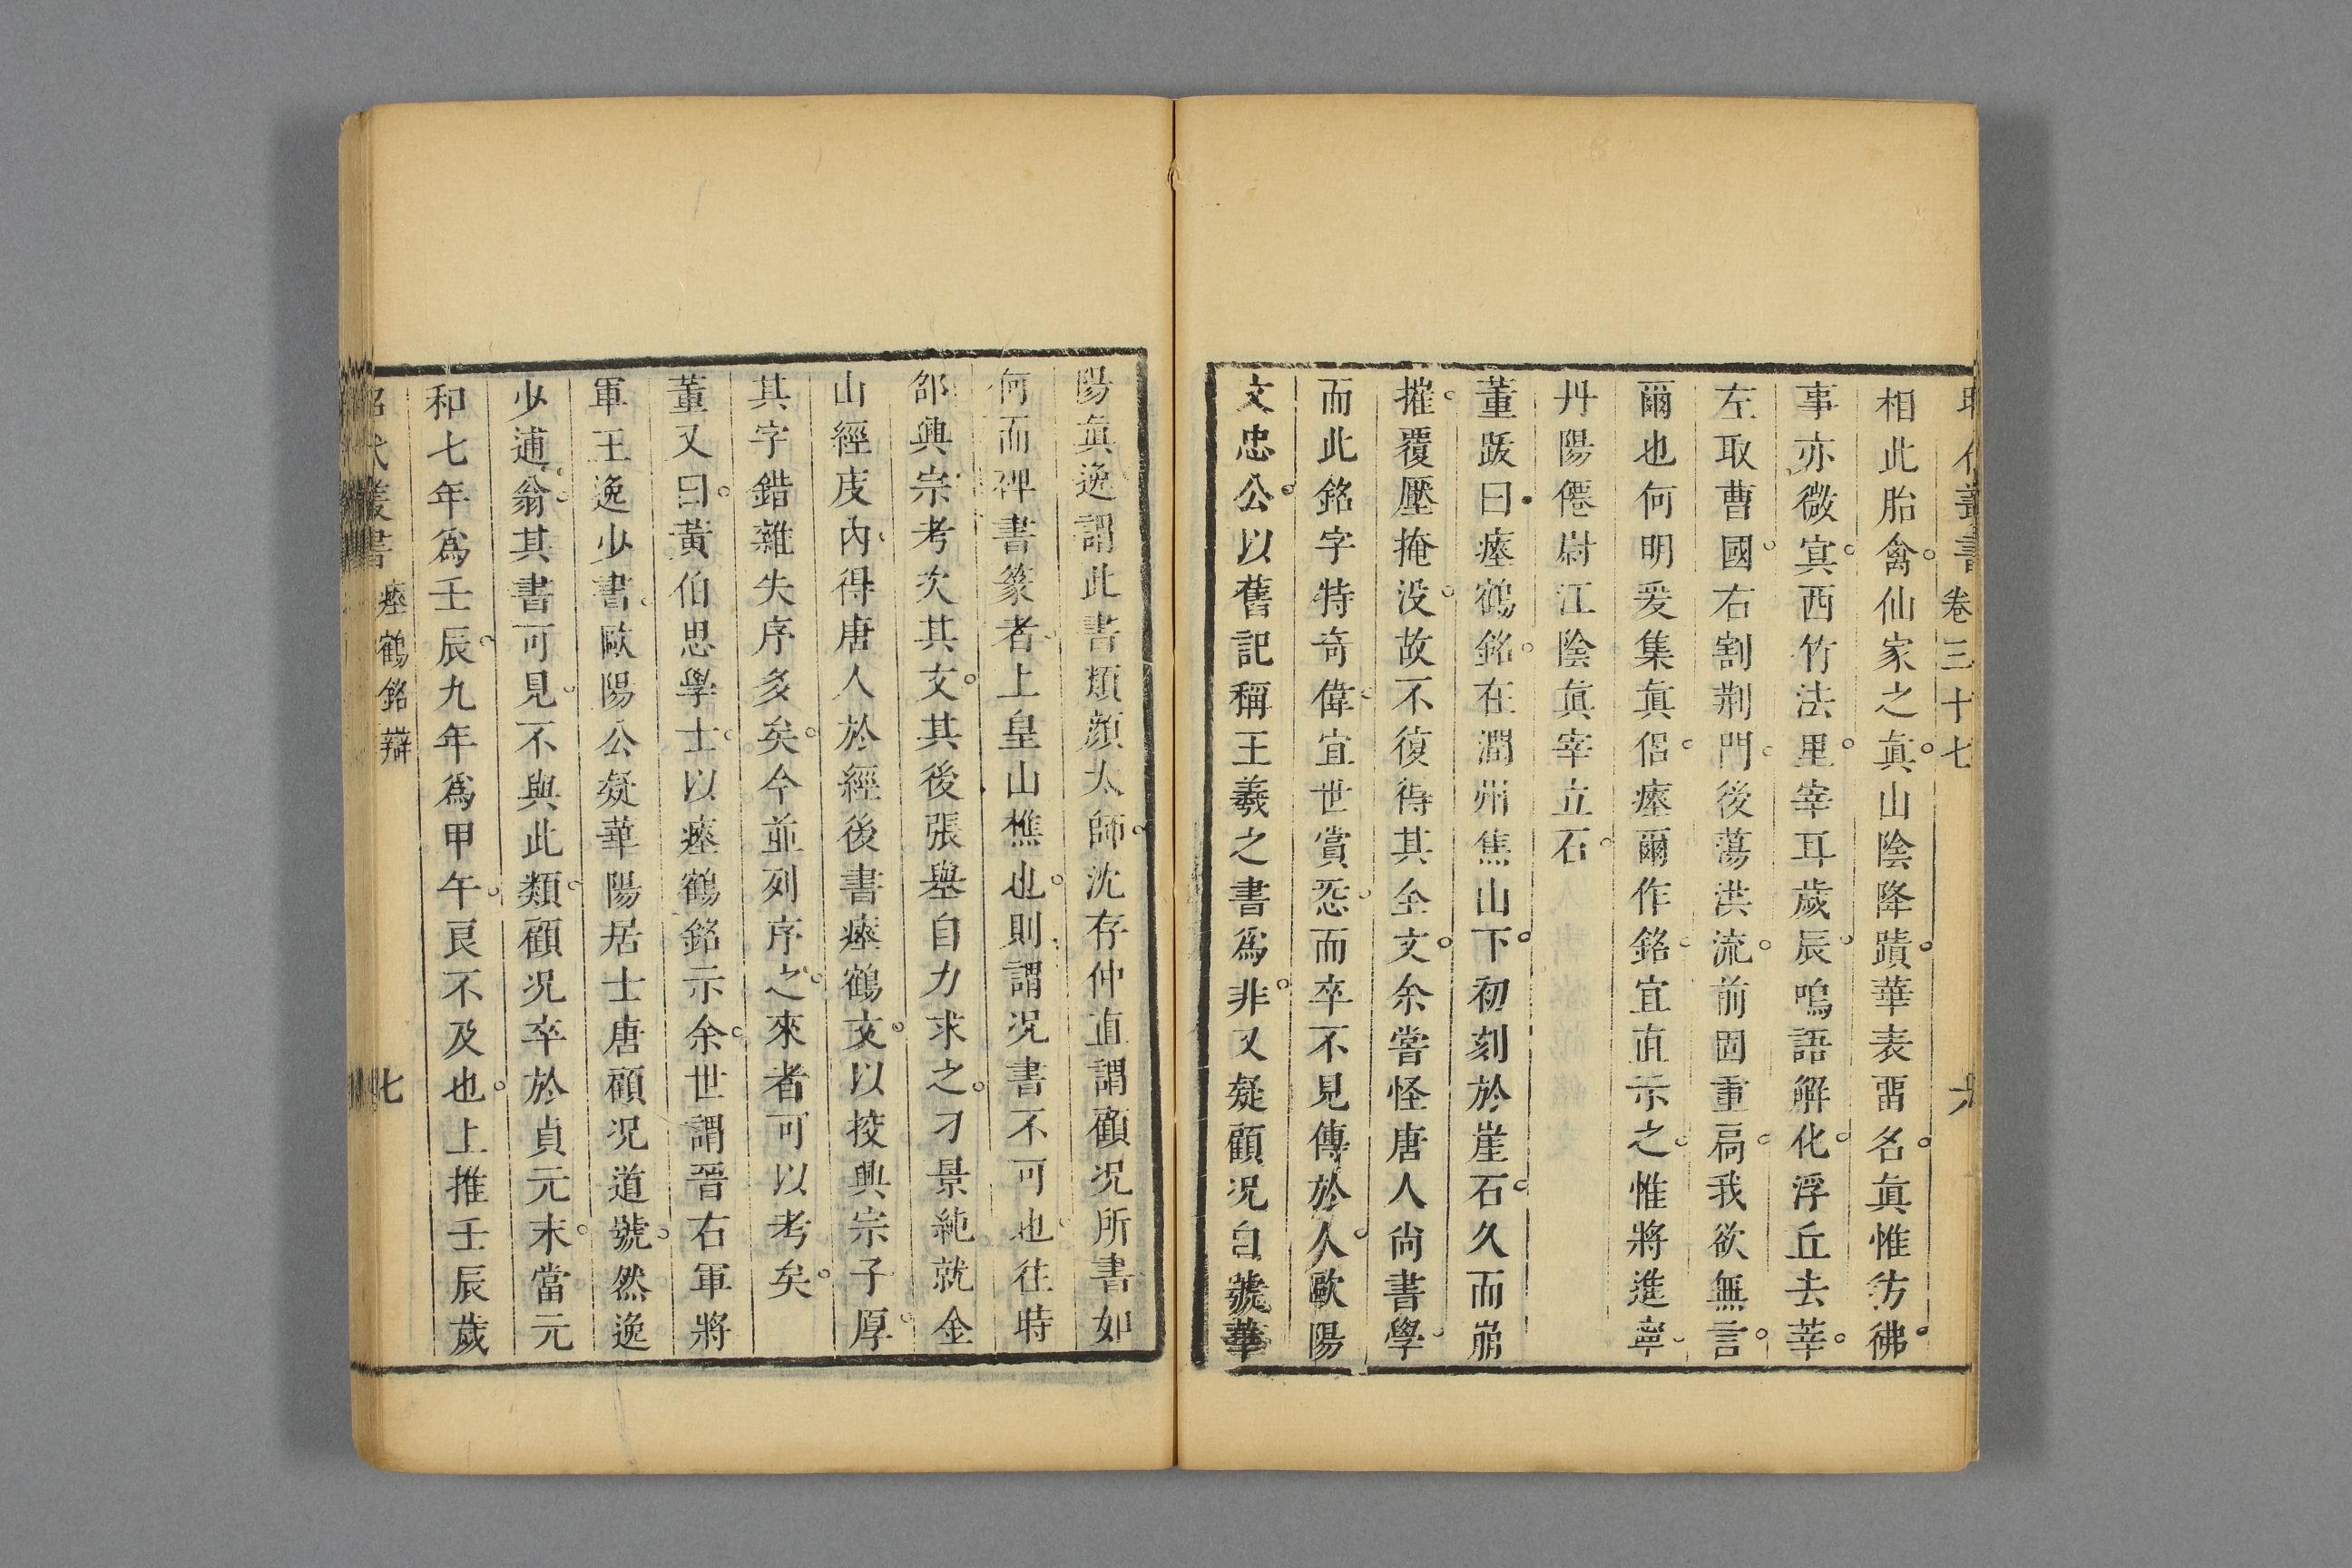 昭代叢書 卷三十七 六
相此胎禽仙家之眞山陰降蹟華表畱名眞惟彷彿
事亦微㝠西竹法里宰耳歲辰鳴語解化浮丘去莘
左取曹國右割荆門後蕩洪流前固重扃我欲無言
爾也何明爰集眞侣瘞爾作銘宜直示之惟將進寜
丹陽僊尉江陰眞宰立石
董跋曰瘞鶴銘在潤州焦山下初刻於崖石久而崩
摧覆壓掩没故不復得其全文余嘗怪唐人尚書學
而此銘字特奇偉宜世賞㤅而卒不見傳於人歐陽
文忠公以舊記稱王羲之書爲非又疑顧况自號華
陽眞逸謂此書類顔太師沈存仲直謂顧况所書如
何而碑書篆者上皇山樵也則謂况書不可也往時
邵興宗考次其文其後張壆自力求之刁景純就金
山經庋内得唐人於經後書瘞鶴文以挍興宗子厚
其字錯雜失序多矣今並列序之來者可以考矣
董又曰黄伯思學士以瘞鶴銘示余世謂晋右軍將
軍王逸少書歐陽公疑華陽居士唐顧况道號然逸
少逋翁其書可見不與此類顧况卒於貞元末當元
和七年爲壬辰九年爲甲午良不及也上推壬辰歲
昭代叢書 瘞鶴銘辯 七